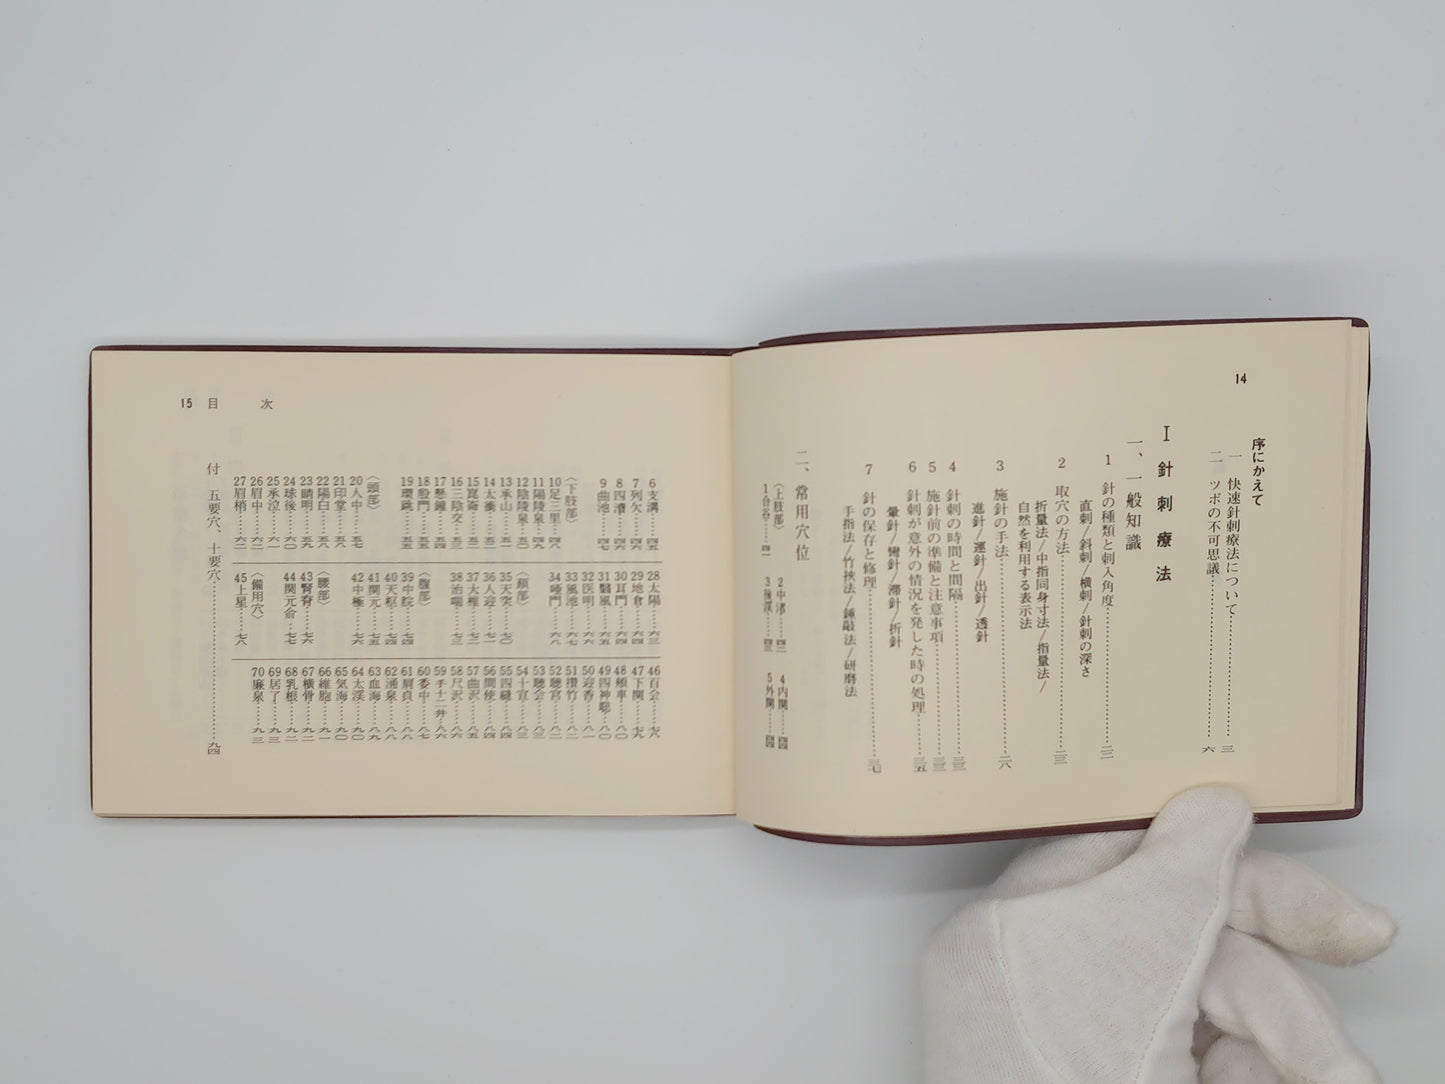 14
序にかえて
一 快速針刺療法について……三
二 ツボの不可思議……六
I 針刺療法
一、一般知識
1 針の種類と刺入角度……二二
直刺/斜刺/横刺/針刺の深さ
2 取穴の方法……二三
折量法/中指同身寸法/指量法/
自然を利用する表示法
3 施針の手法……二八
進針/運針/出針/透針
4 針刺の時間と間隔……三三
5 施針前の準備と注意事項……三三
6 針刺が意外の情況を発した時の処理……三五
暈針/彎針/滞針/折針
7 針の保存と修理……三七
手指法/竹挾法/錘敲法/研磨法
二、常用穴位
〈上肢部〉
1合谷……四一
2中渚……四二
3後渓……四三
4内関……四四
5外関……四五
15 目次
6支溝……四五
7列欠……四六
8四瀆……四六
9曲池……四七
〈下肢部〉
10足三里……四八
11陽陵泉……四九
12陰陵泉……五〇
13承山……五一
14太衝……五一
15崑崙……五二
16三陰交……五三
17懸鐘……五四
18殷門……五五
19環跳……五五
〈頭部〉
20人中……五七
21印堂……五七
22陽白……五八
23睛明……五九
24球後……六〇
25承泣……六一
26眉中……六二
27眉梢……六二
28太陽……六三
29地倉……六四
30耳門……六四
31翳風……六五
32医明……六六
33風池……六七
34瘂門……六八
〈頸部〉
35天突……七〇
36人迎……七一
37大椎……七二
38治喘……七三
〈腹部〉
39中院……七四
40天枢……七四
41関元……七五
42中極……七六
〈腰部〉
43腎脊……七六
44関元俞……七七
〈備用穴〉
45上星……七八
46百会……七八
47下関……七九
48頰車……八〇
49四神聡……八〇
50迎香……八一
51攢竹……八二
52聴宮……八二
53聴会……八三
54十宣……八三
55四縫……八四
56間使……八四
57曲沢……八五
58尺沢……八六
59手十二井……八六
60委中……八七
61肩貞……八八
62湧泉……八八
63血海……八九
64太渓……九〇
65気海……九〇
66維胞……九一
67横骨……九二
68乳根……九二
69居了……九三
70廉泉……九三
付 五要穴、十要穴……九四